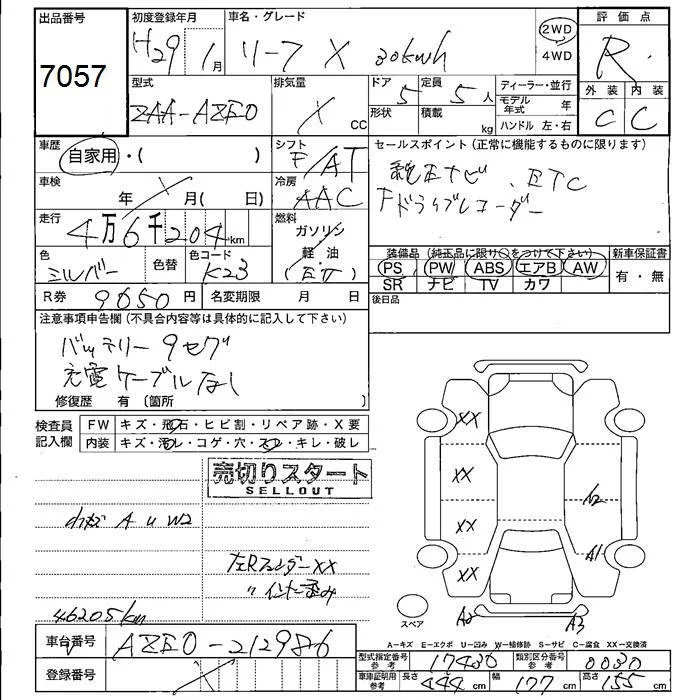 出品番号 7057
初度登録年月 H29年 1月
車名・グレード リーフ X 30kwh
2WD 4WD
評価点 R
外装 内装 C C
型式 ZAA-AZE0
排気量 cc
ドア 形状 5
定員 5人 積載 kg
ディーラー・並行
モデル年式 年
ハンドル 左・右
車歴 自家用・( )
シフト F/AT
セールスポイント(正常に機能するものに限ります)
純正ナビ、ETC
ドライブレコーダー
車検 年 月( 日)
冷房 AAC
走行 4万6千204km
燃料 ガソリン 軽・油 (EV)
色 シルバー 色替 色コード K23
装備品(純正品に限り○をつけて下さい)
PS PW ABS エアB AW
SR ナビ TV カワ
新車保証書 有・無
R券 9650円 名変期限 月 日
後日品
注意事項申告欄(不具合内容等は具体的に記入して下さい)
バッテリー9セグ
充電ケーブルなし
修復歴 有(箇所 )
検査員記入欄 FW キズ・飛石・ヒビ割・リペア跡・X要
内装 キズ・汚レ・コゲ・穴・スレ・キレ・破レ
売切りスタート
SELLOUT
A U W2
左Rフェンダー XX
〃インナー歪み
46205km
XX
XX
XX
XX
A2
A1
A2
A3
スペア
A-キズ E-エクボ U-凹み W-補修跡 S-サビ C-腐食 XX-交換済
車台番号 AZE0-212986
登録番号
型式指定番号 参考 17430 類別区分番号 参考 0030
車庫証明用 参考 長さ 444cm 幅 177cm 高さ 155cm